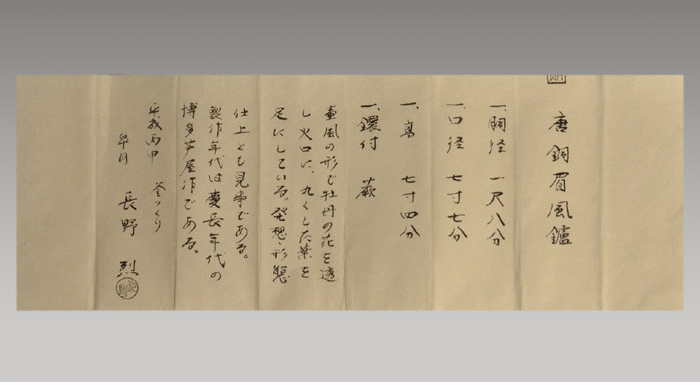 唐銅眉風鑪
一、胴径 一尺八分
一、口径 七寸七分
一、高 七寸四分
一、鐶付 蕨
壷風の形で牡丹の花を透
し火口に、丸くした葉を
足にしている。発想・形態
仕上とも見事である。
製作年代は慶長年代の
博多芦屋作である。
平成丙申 釜つくり
皐月 長野 烈